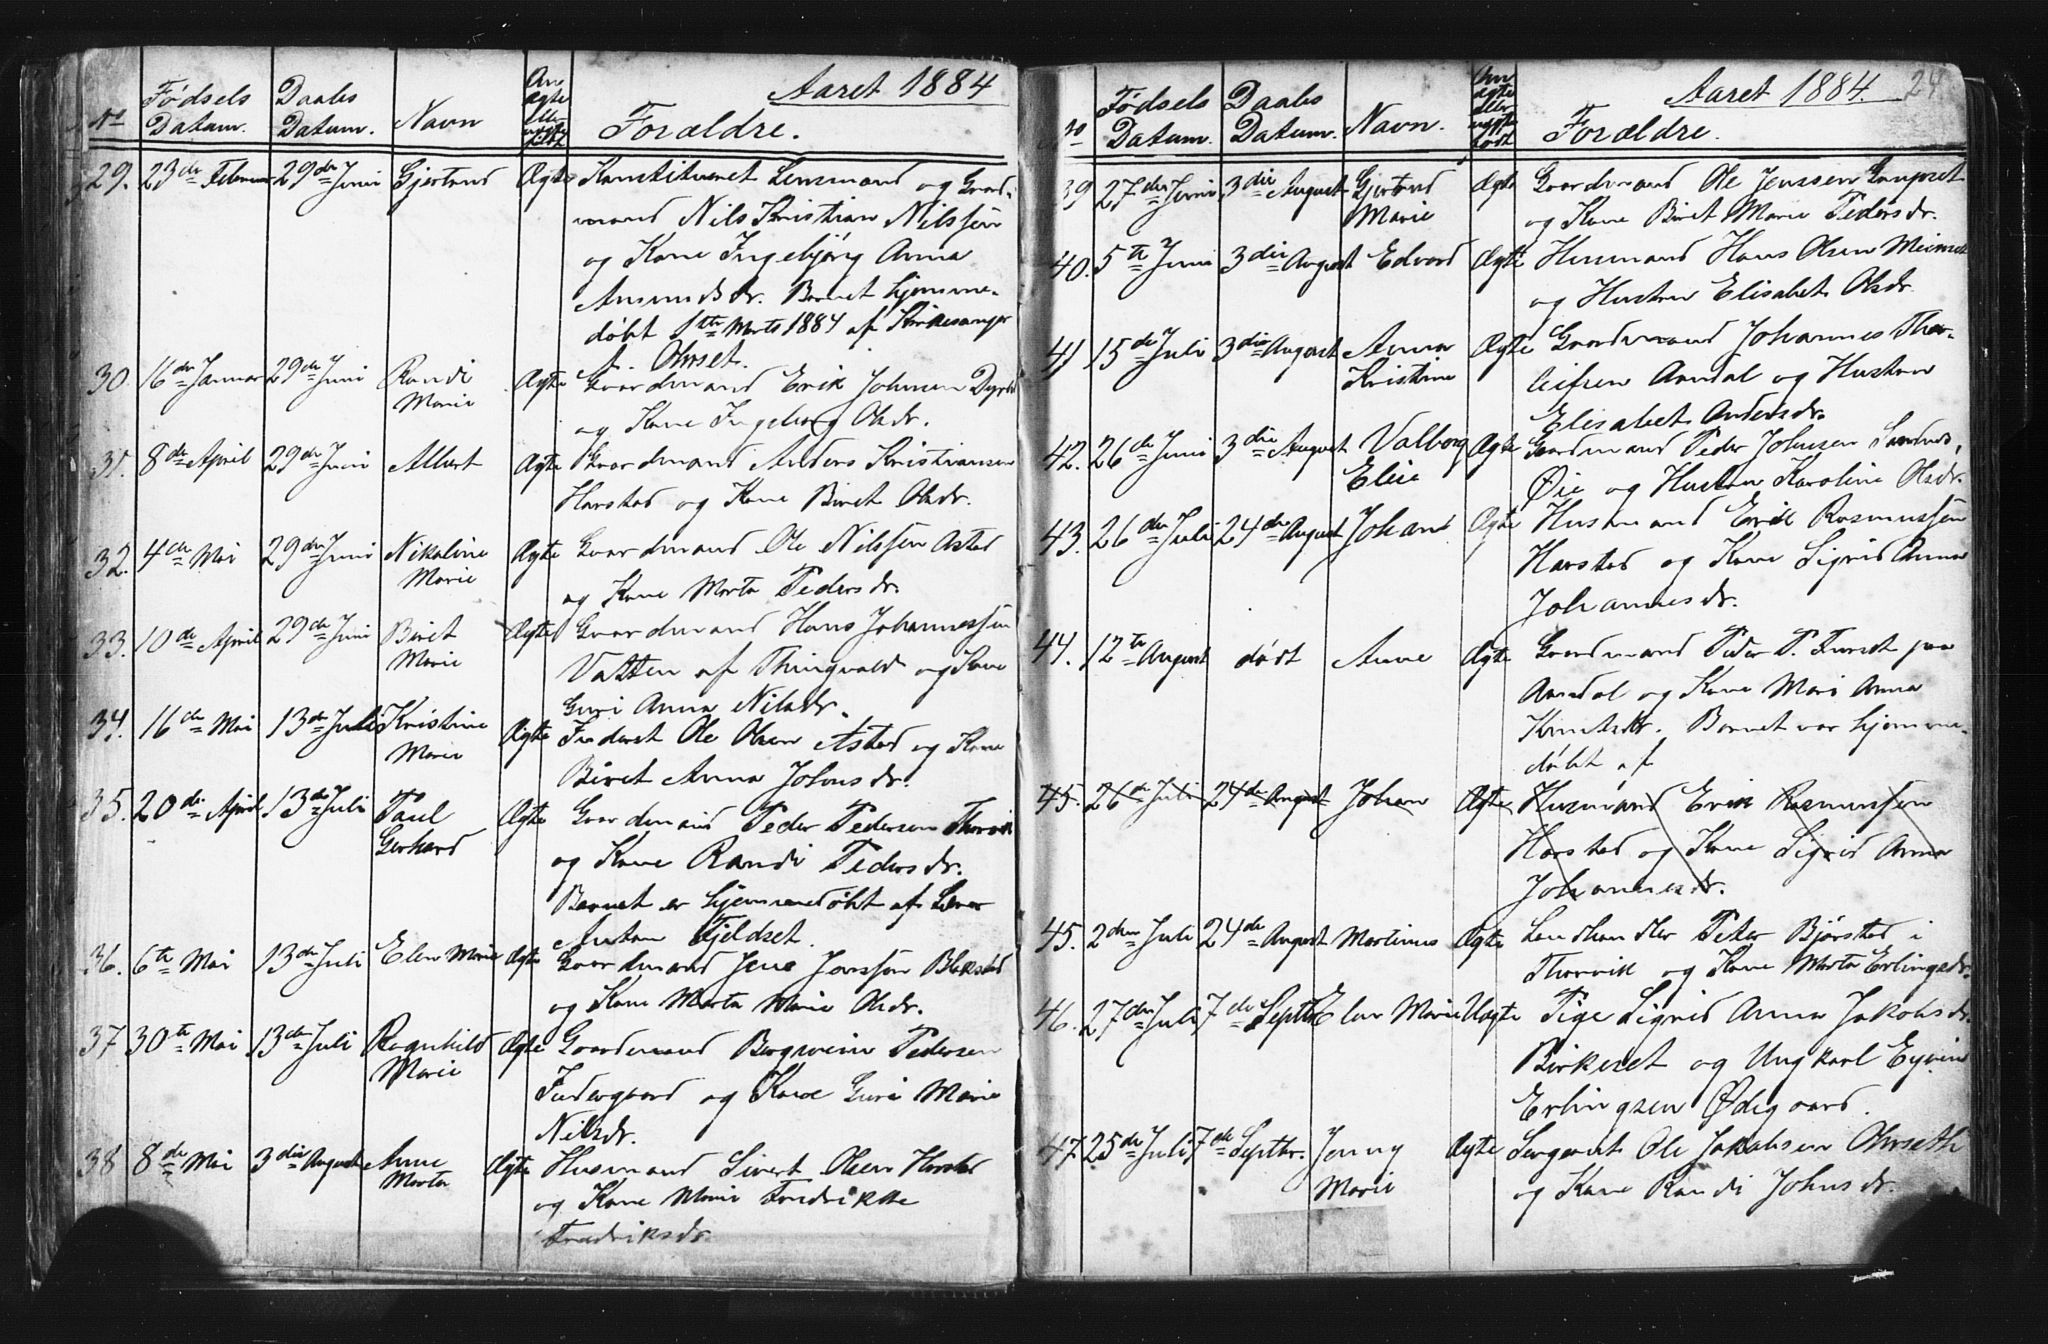 Aaret 1884
No Fødsels Datum. Daabs Datum. Navn An ægte eller uægte født Forældre.
29. 23de Februar 29de Juni Gjertrud Ægte Konstitueret Lensmand og Gaard-
mand Nils Kristian Nilssen
og Kone Ingebjörg Anna
Amundsdr. Barnet hjemme-
döbt 1ste Marts 1884 af Kirkesanger
J. Ohrset.
30. 16de Januar 29de Juni Randi Ægte Gaardmand Erik Johnsen
Marie og Kone Ingeborg Olsdr.
31. 8de April 29de Juni Albert Ægte Gaardmand Anders Kristiansen
Harstad og Kone Beret Olsdr.
32. 4de Mai 29de Juni Nikoline Ægte Gaardmand Ole Nilssen Astad
Marie og Kone Marta Pedersdr.
33. 10de April 29de Juni Beret Ægte Gaardmand Hans Johannessen
Marie Vatten af Thingvold og Kone
Guri Anna Nilsdr.
34. 16de Mai 13de Juli Kristine Ægte Inderst Ole Olsen Astad og Kone
Marie Beret Anna Johnsdr.
35. 20de April 13de Juli Paul Ægte Gaardmand Peder Pedersen Thorvik
Gerhard og Kone Randi Pedersdr.
Barnet er hjemmedöbt af Lærer
Anton Fjeldset.
36. 6te Mai 13de Juli Elen Marie Ægte Gaardmand Jens Jonssen Blakstad
og Kone Marta Marie Olsdr.
37 30te Mai 13de Juli Ragnhild Ægte Gaardmand Bergsvein Pedersen
Marie Indergaard og Kone Guri Marie
Nilsdr.
38 8de Mai 3die August Anne Ægte Husmand Sivert Olsen Harstad
Marta og Kone Marie Fredrikke
Fredriksdr.
Aaret 1884. 24
No Fødsels Datum. Daabs Datum. Navn. An ægte eller uægte født Forældre.
39 27de Juni 3die August Gjertrud Ægte Gaardmand Ole Jenssen
Marie og Kone Beret Marie Pedersdr.
40. 5te Juni 3die August Edvard Ægte Husmand Hans Olsen
og Hustru Elisabet Olsdr.
41 15de Juli 3die August Anna Ægte Gaardmand Johannes Thor-
Kristine leifsen Aandal og Hustru
Elisabet Andersdr.
42. 26de Juni 3die August Valborg Ægte Gaardmand Peder Johnsen Sandnes,
Elise Øie og Hustru Karoline Olsdr.
43. 26de Juli 24de August Johan Ægte Husmand Erik Rasmussen
Harstad og Kone Sigrid Anna
Johannesdr.
44. 12te August dødt Anne Ægte Gaardmand Peder P. Furset paa
Aandal og Kone Mari Anna
Knutsdr. Barnet var hjemme-
döbt af
45. 26de Juli 24de August Johan Ægte Husmand Erik Rasmussen
Harstad og Kone Sigrid Anna
Johannesdr.
45. 2den Juli 24de August Martinus Ægte Landhandler Peter Bjørstad i
Thorvik og Kone Marta Erlingsdr.
46. 27de Juli 7de Septbr Elen Marie Uægte Pige Sigrid Anna Jakobsdr.
Birkeset og Ungkarl Eyvin
Erlingsen Ødegaard.
47. 25de Juli 7de Septbr. Jenny Ægte Sergeant Ole Jakobsen Ohrseth
Marie og Kone Randi Johnsdr.